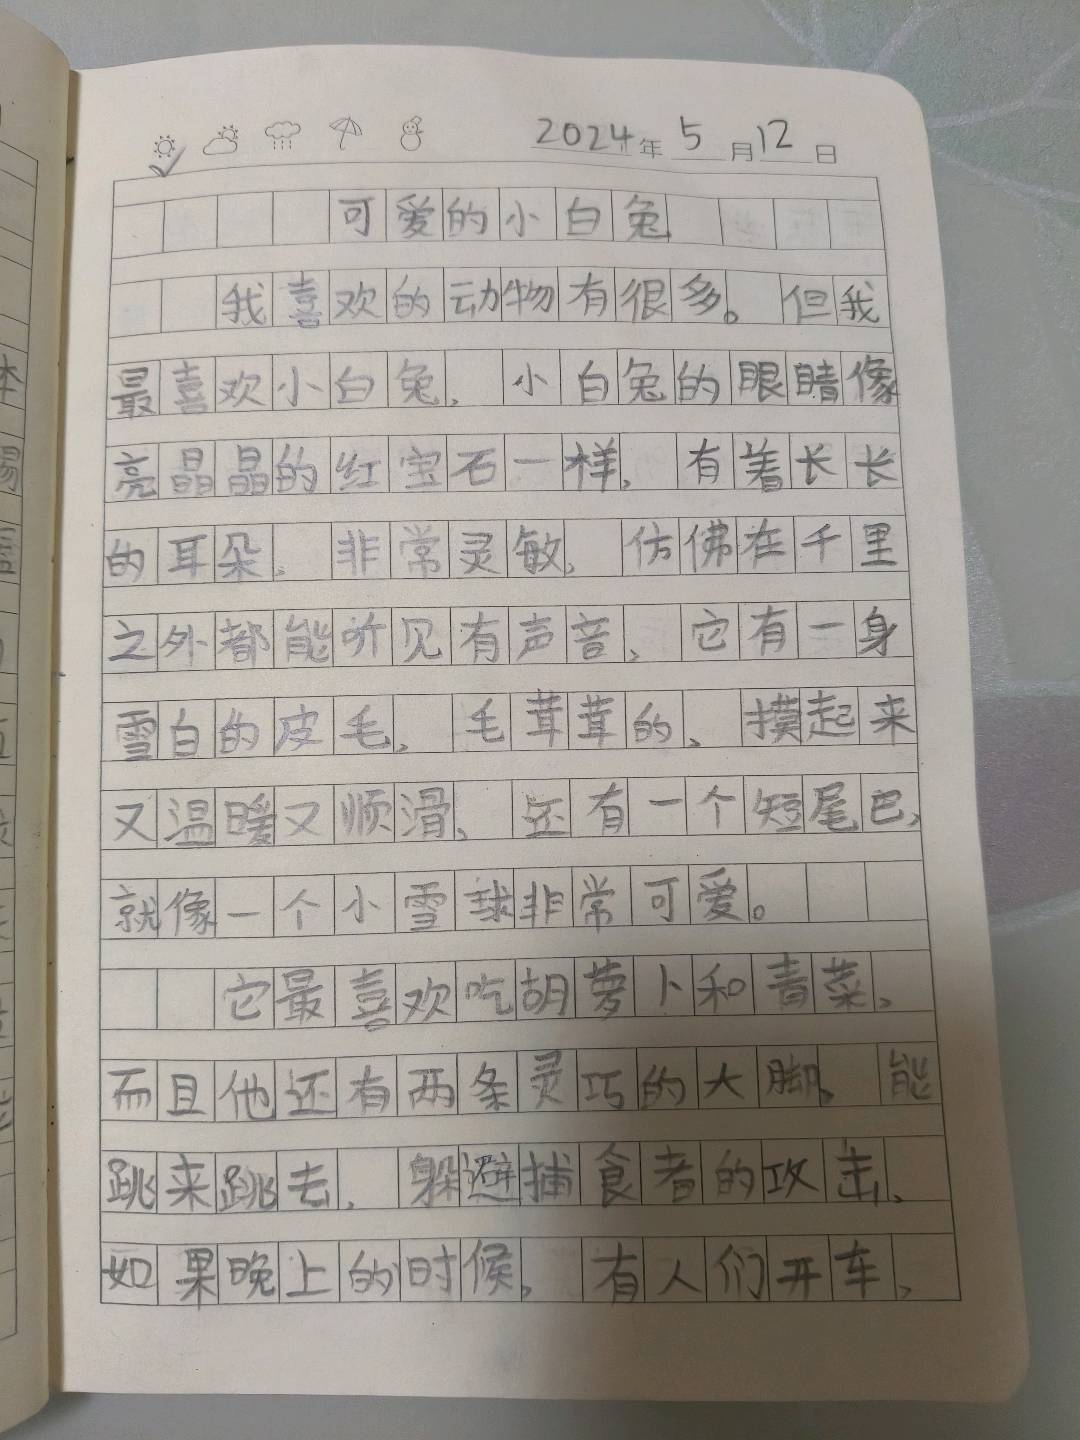 2024年5月12日
可爱的小白兔
我喜欢的动物有很多。但我
最喜欢小白兔，小白兔的眼睛像
亮晶晶的红宝石一样，有着长长
的耳朵，非常灵敏，仿佛在千里
之外都能听见有声音，它有一身
雪白的皮毛，毛茸茸的，摸起来
又温暖又顺滑，还有一个短尾巴，
就像一个小雪球非常可爱。
它最喜欢吃胡萝卜和青菜，
而且他还有两条灵巧的大脚，能
跳来跳去，躲避捕食者的攻击，
如果晚上的时候，有人们开车，